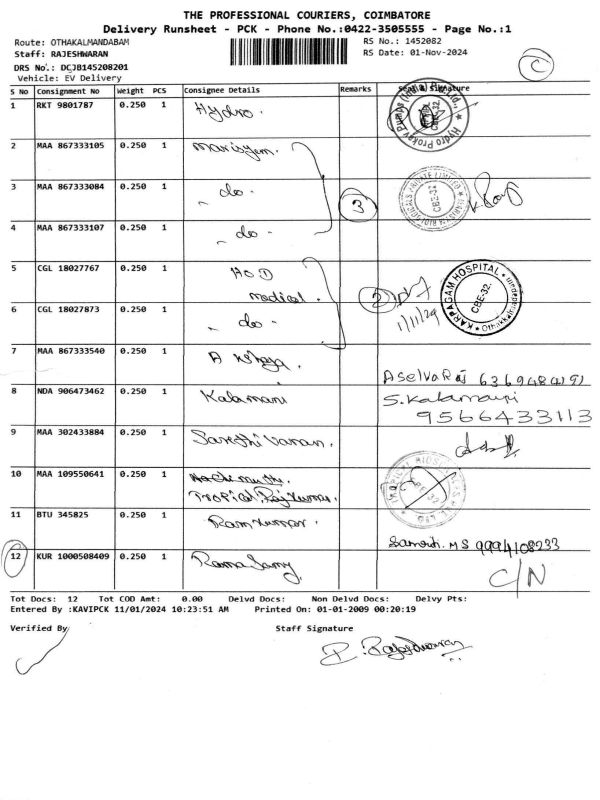 THE PROFESSIONAL COURIERS, COIMBATORE
Delivery Runsheet - PCK - Phone No.:0422-3505555 - Page No.:1
Route: OTHAKALMANDABAM
RS No.: 1452082
Staff: RAJESHWARAN
RS Date: 01-Nov-2024
DRS No.: DCJB145208201
Vehicle: EV Delivery
C
S No Consignment No Weight PCS Consignee Details Remarks Seal & Signature
1 RKT 9801787 0.250 1 Hydro.
2 MAA 867333105 0.250 1
3 MAA 867333084 0.250 1 - do - 3
CBE-32
4 MAA 867333107 0.250 1 - do -
5 CGL 18027767 0.250 1 HOD medical. 2
KARPAGAM HOSPITAL
CBE-32.
6 CGL 18027873 0.250 1 - do - 1/11/24
7 MAA 867333540 0.250 1 A
A Selvaraj 6369484191
8 NDA 906473462 0.250 1 Kalamani S. Kalamani
9566433113
9 MAA 302433884 0.250 1
10 MAA 109550641 0.250 1
Tropical, Raj Kumar.
11 BTU 345825 0.250 1 Ram Kumar.
9994108233
12 KUR 1000508409 0.250 1 Rama Samy C/N
Tot Docs: 12 Tot COD Amt: 0.00 Delvd Docs: Non Delvd Docs: Delvy Pts:
Entered By :KAVIPCK 11/01/2024 10:23:51 AM Printed On: 01-01-2009 00:20:19
Verified By Staff Signature
P. Rajeshwaran